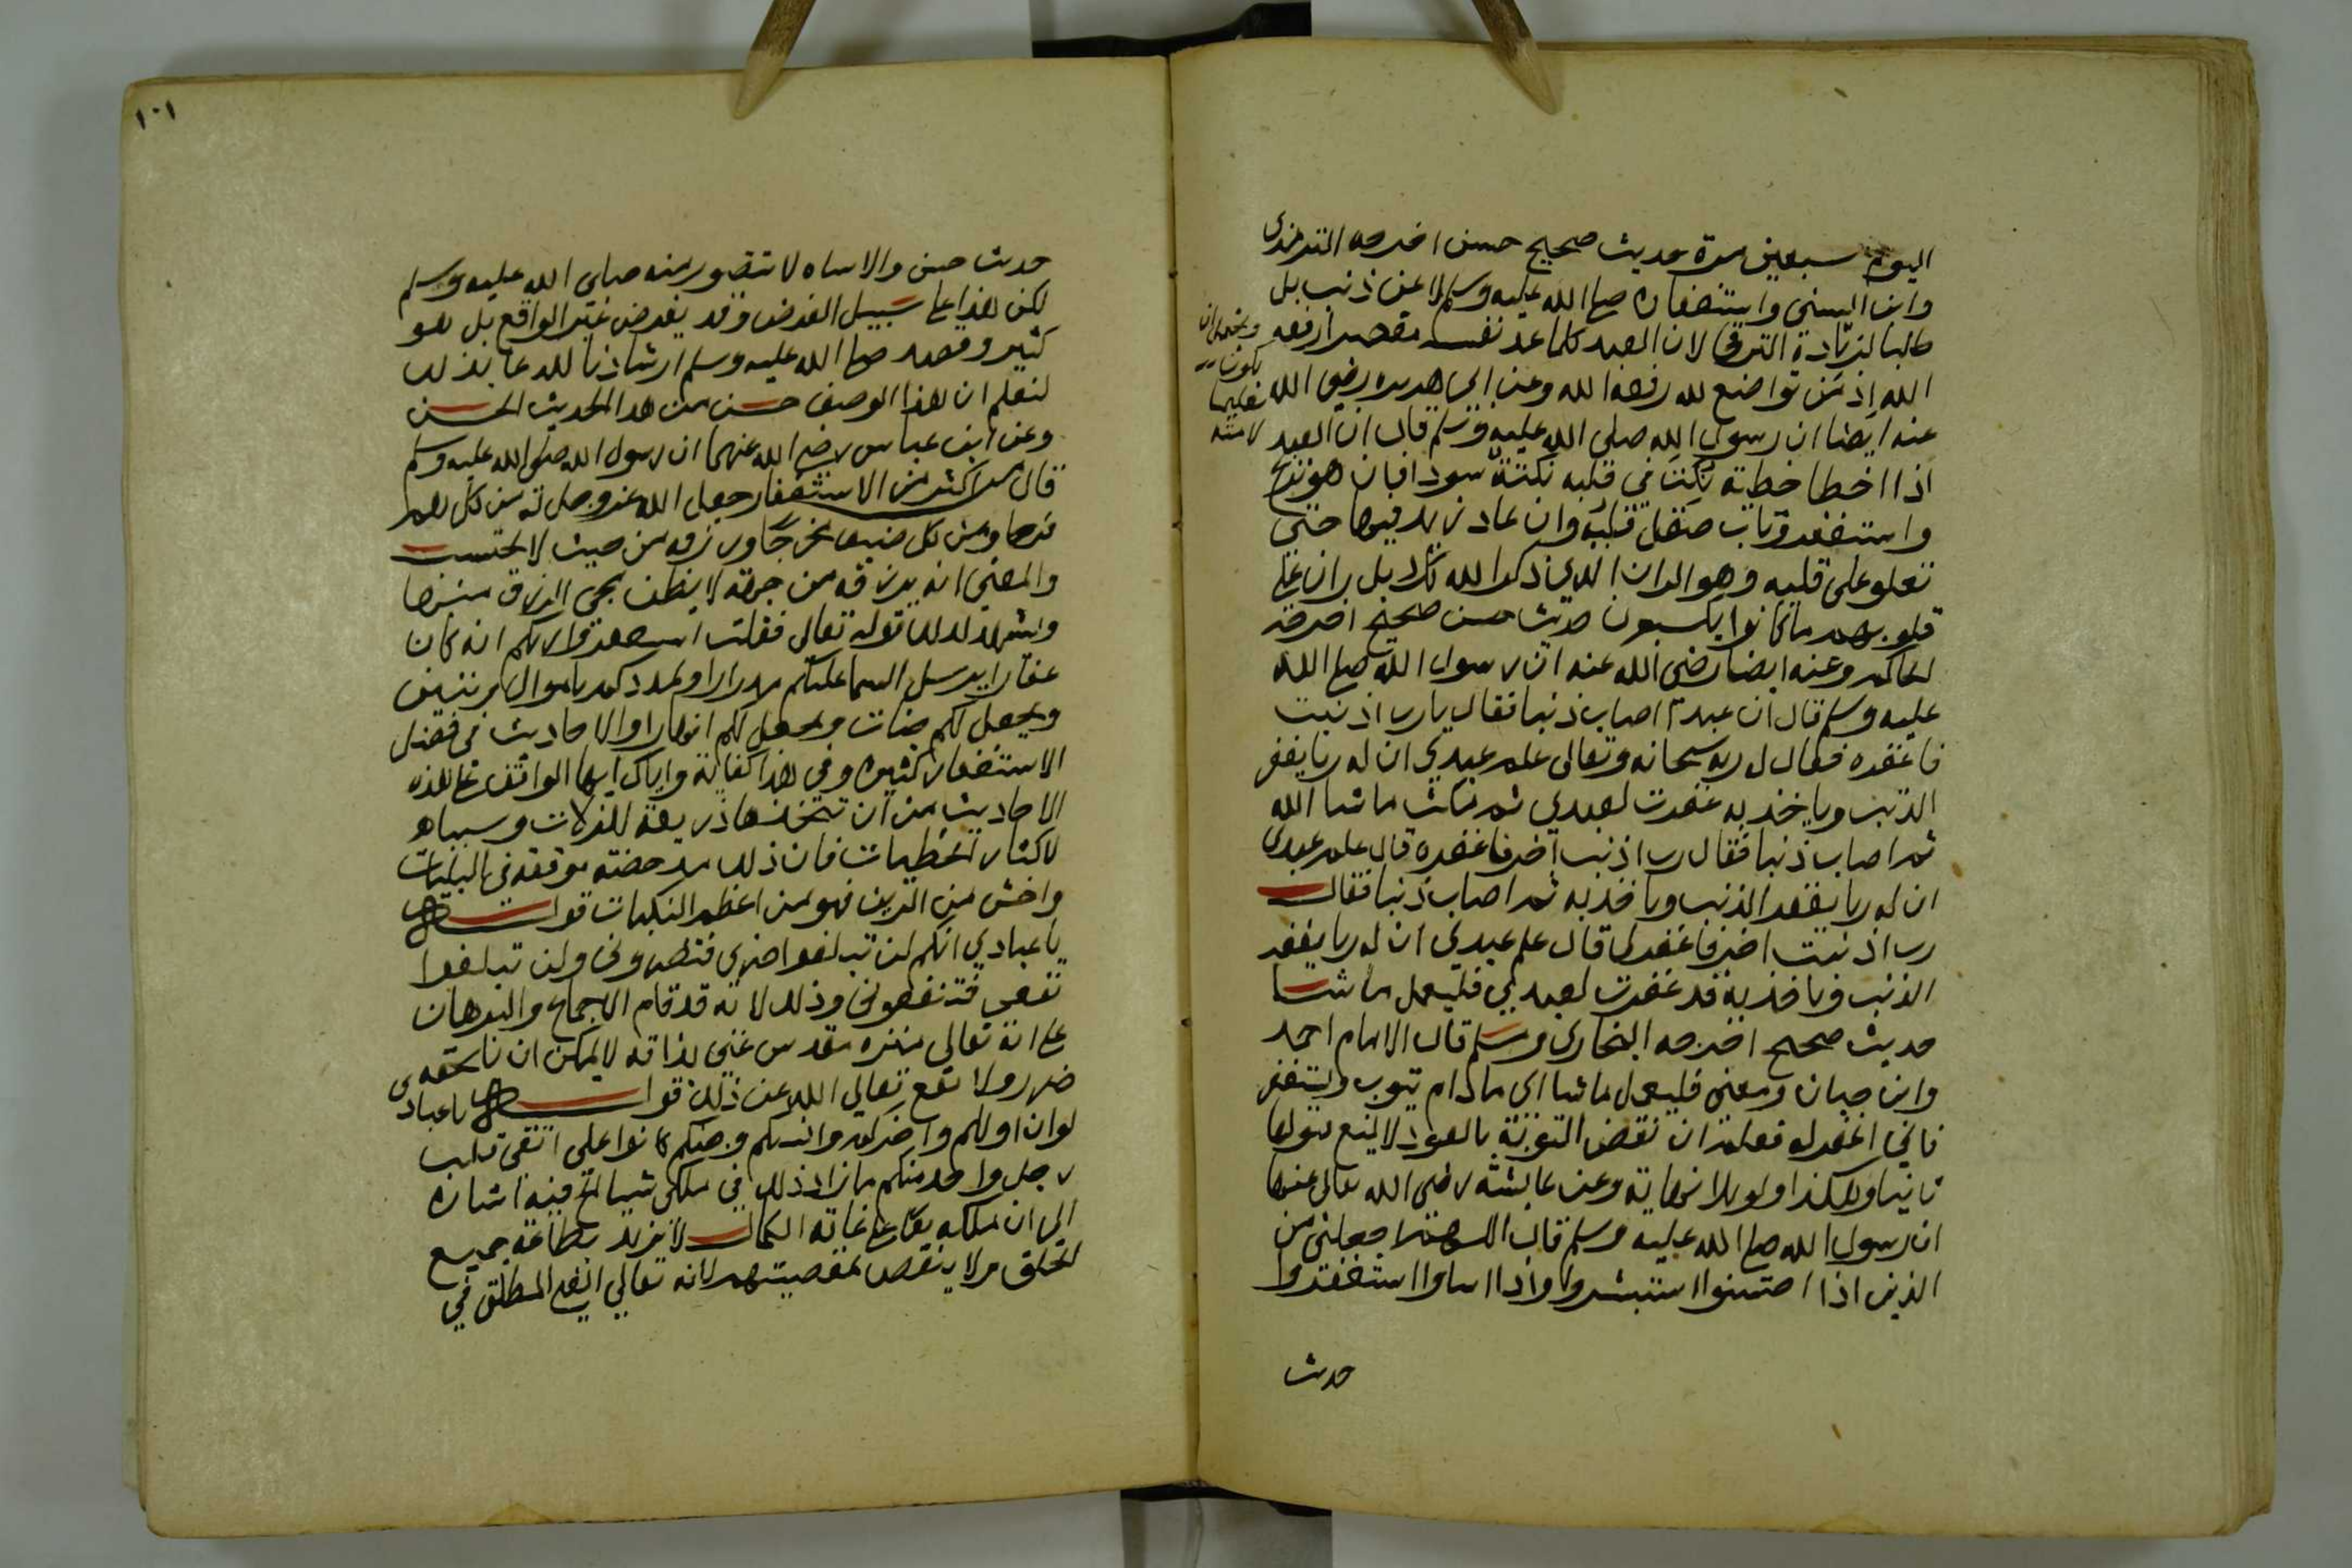 اليوم سبعين مرة حديث صحيح حسن اخرجه الترمذي
وابن السني واستغفاره صلى الله عليه وسلم لا عن ذنب بل
طالبا لزيادة الترقي لان العبد كلما عد نفسه مقصرا رفعه
الله اذ من تواضع لله رفعه الله وعن ابي هريرة رضي الله
عنه ايضا ان رسول الله صلى الله عليه وسلم قال ان العبد
اذا اخطا خطية نكتت في قلبه نكتة سودا فان هو نزع
واستغفر وتاب صقل قلبه وان عاد زيد فيها حتى
تعلو على قلبه وهو الران الذي ذكر الله كلا بل ران على
قلوبهم ما كانوا يكسبون حديث حسن صحيح اخرجه
الحاكم وعنه ايضا رضي الله عنه ان رسول الله صلى الله
عليه وسلم قال ان عبدا اصاب ذنبا فقال يا رب اذنبت
فاغفره فقال له ربه سبحانه وتعالى علم عبدي ان له ربا يغفر
الذنب وياخذ به غفرت لعبدي ثم مكث ما شا الله
ثم اصاب ذنبا فقال رب اذنبت اخر فاغفره قال علم عبدي
ان له ربا يغفر الذنب وياخذ به ثم اصاب ذنبا فقال
رب اذنبت اخر فاغفر لي قال علم عبدي ان له ربا يغفر
الذنب وياخذ به قد غفرت لعبدي فليعمل ما شا
حديث صحيح اخرجه البخاري ومسلم قال الامام احمد
وابن حبان ومعنى فليعمل ما شا اي ما دام يتوب ويستغفر
فاني اغفر له فعلم ان نقض التوبة بالعود لا يمنع قبولها
ثانيا وهكذا ولو بلا نهاية وعن عايشة رضي الله تعالى عنها
ان رسول الله صلى الله عليه وسلم قال اللهم اجعلني من
الذين اذا احسنوا استبشروا واذا اساوا استغفروا
حديث
ويحتمل ان
يكون
تعليما
لامته
١٠١
حديث حسن والاساه لا تتصور منه صلى الله عليه وسلم
لكن هذا على سبيل الفرض وقد يفرض غير الواقع بل هو
كثير وقصد صلى الله عليه وسلم ارشادنا للدعا بذلك
لنعلم ان هذا الوصف حسن من هذا الحديث الحسن
وعن ابن عباس رضي الله عنهما ان رسول الله صلى الله عليه وسلم
قال من اكثر من الاستغفار جعل الله عز وجل له من كل هم
فرجا ومن كل ضيق مخرجا ورزقه من حيث لا يحتسب
والمعنى انه يرزقه من جهة لا يظن مجي الرزق منها
ويشهد لذلك قوله تعالى فقلت استغفروا ربكم انه كان
غفارا يرسل السما عليكم مدرارا ويمددكم باموال وبنين
ويجعل لكم جنات ويجعل لكم انهارا والاحاديث في فضل
الاستغفار كثيرة وفي هذا كفاية واياك ايها الواقف على هذه
الاحاديث من ان تتخذها ذريعة للزلات وسببا
لاكثار الخطيات فان ذلك مدحضة موقعة في البليات
واخش من الدين فهو من اعظم النكبات قوله
يا عبادي انكم لن تبلغوا ضري فتضروني ولن تبلغوا
نفعي فتنفعوني وذلك لانه قد قام الاجماع والبرهان
على انه تعالى منزه مقدس غني بذاته لا يمكن ان يلحقه
ضرر ولا نفع تعالى الله عن ذلك قوله يا عبادي
لو ان اولكم واخركم وانسكم وجنكم كانوا على اتقى قلب
رجل واحد منكم ما زاد ذلك في ملكي شيا الخ فيه اشارة
الى ان ملكه تعالى على غاية الكمال لا يزيد بطاعة جميع
الخلق ولا ينقص بمعصيتهم لانه تعالى الغني المطلق في